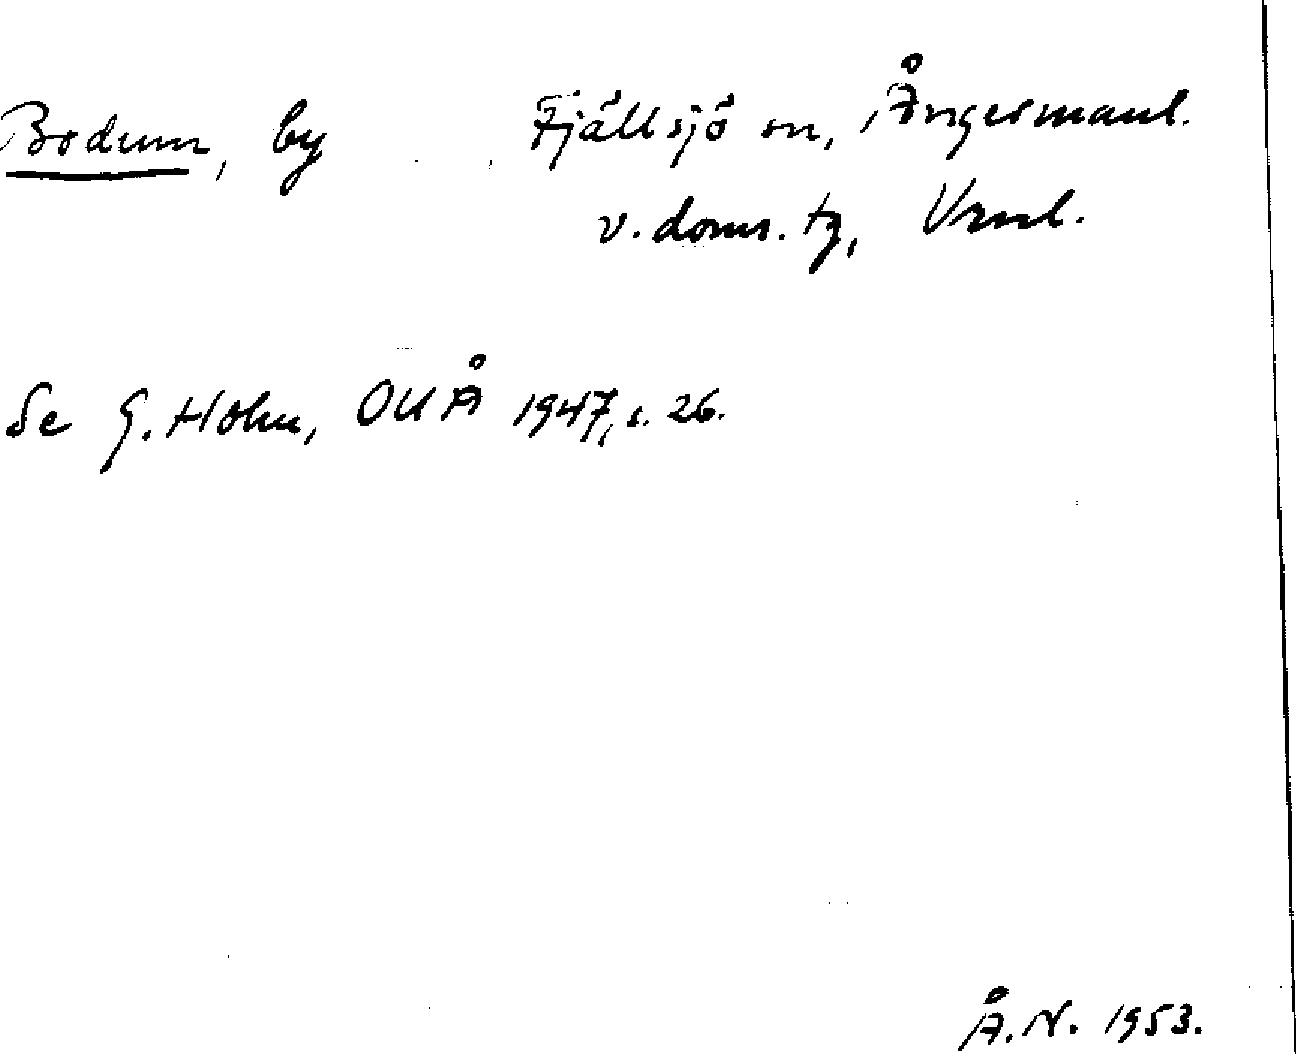 Bodum, by Fjällsjö sn, Ångermanl.
v. doms. tg, Vrnl.
Se G. Holm, OUÅ 1947, s. 26.
Å.N. 1953.